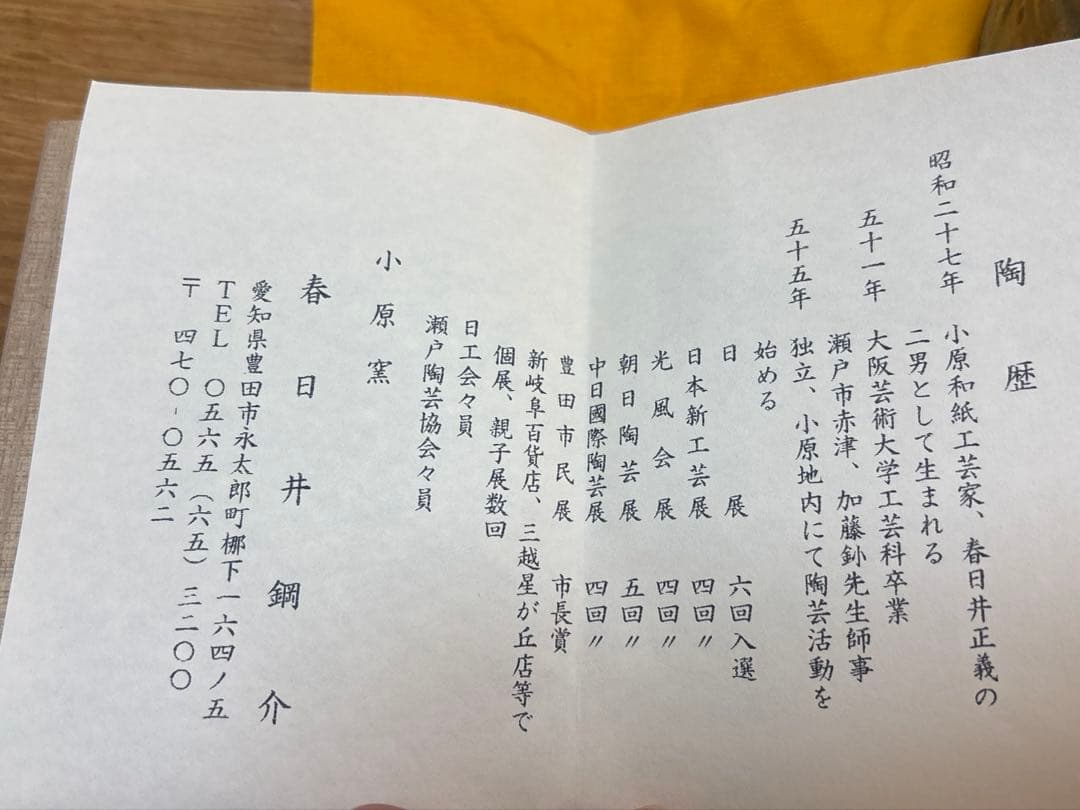 陶歴
昭和二十七年 小原和紙工芸家、春日井正義の
二男として生まれる
五十一年 大阪芸術大学工芸科卒業
瀬戸市赤津、加藤釥先生師事
五十五年 独立、小原地内にて陶芸活動を
始める
日展 六回入選
日本新工芸展 四回〃
光風会展 四回〃
朝日陶芸展 五回〃
中日國際陶芸展 四回〃
豊田市民展 市長賞
新岐阜百貨店、三越星が丘店等で
個展、親子展数回
日工会々員
瀬戸陶芸協会々員
小原窯
春日井鋼介
愛知県豊田市永太郎町梛下一六四ノ五
TEL 〇五六五(六五)三二〇〇
〒 四七〇-〇五六二